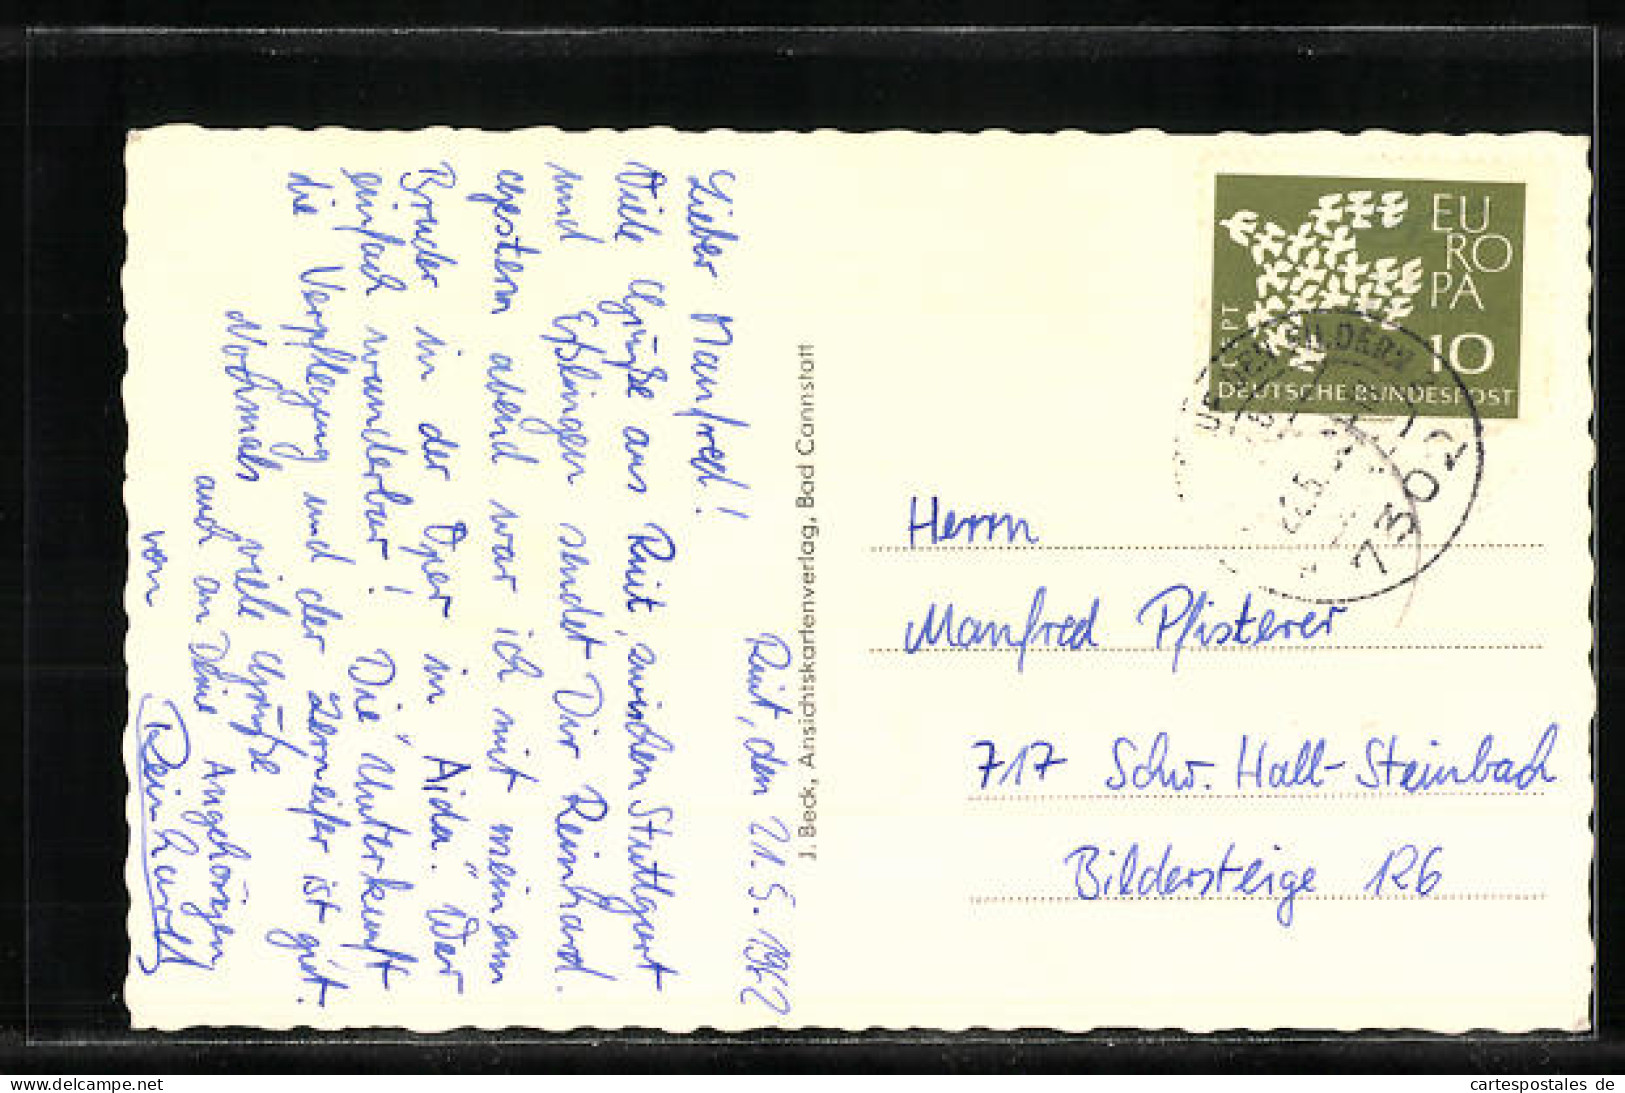 Ruit, den 21.5.1962
Lieber Manfred!
Viele Grüße aus Ruit, zwischen Stuttgart
und Eßlingen sendet Dir Reinhard.
Gestern abend war ich mit meinem
Bruder in der Oper in "Aida". War
einfach wunderbar! Die Unterkunft
die Verpflegung und der ist gut.
Nochmals viele Grüße
auch an Deine Angehörigen
von Reinhard
J. Beck, Ansichtskartenverlag, Bad Cannstatt
EU
RO
PA
CEPT
10
DEUTSCHE BUNDESPOST
7302
Herrn
Manfred Pfisterer
717 Schw. Hall-Steinbach
Bildersteige 126
www.delcampe.net
cartespostales de